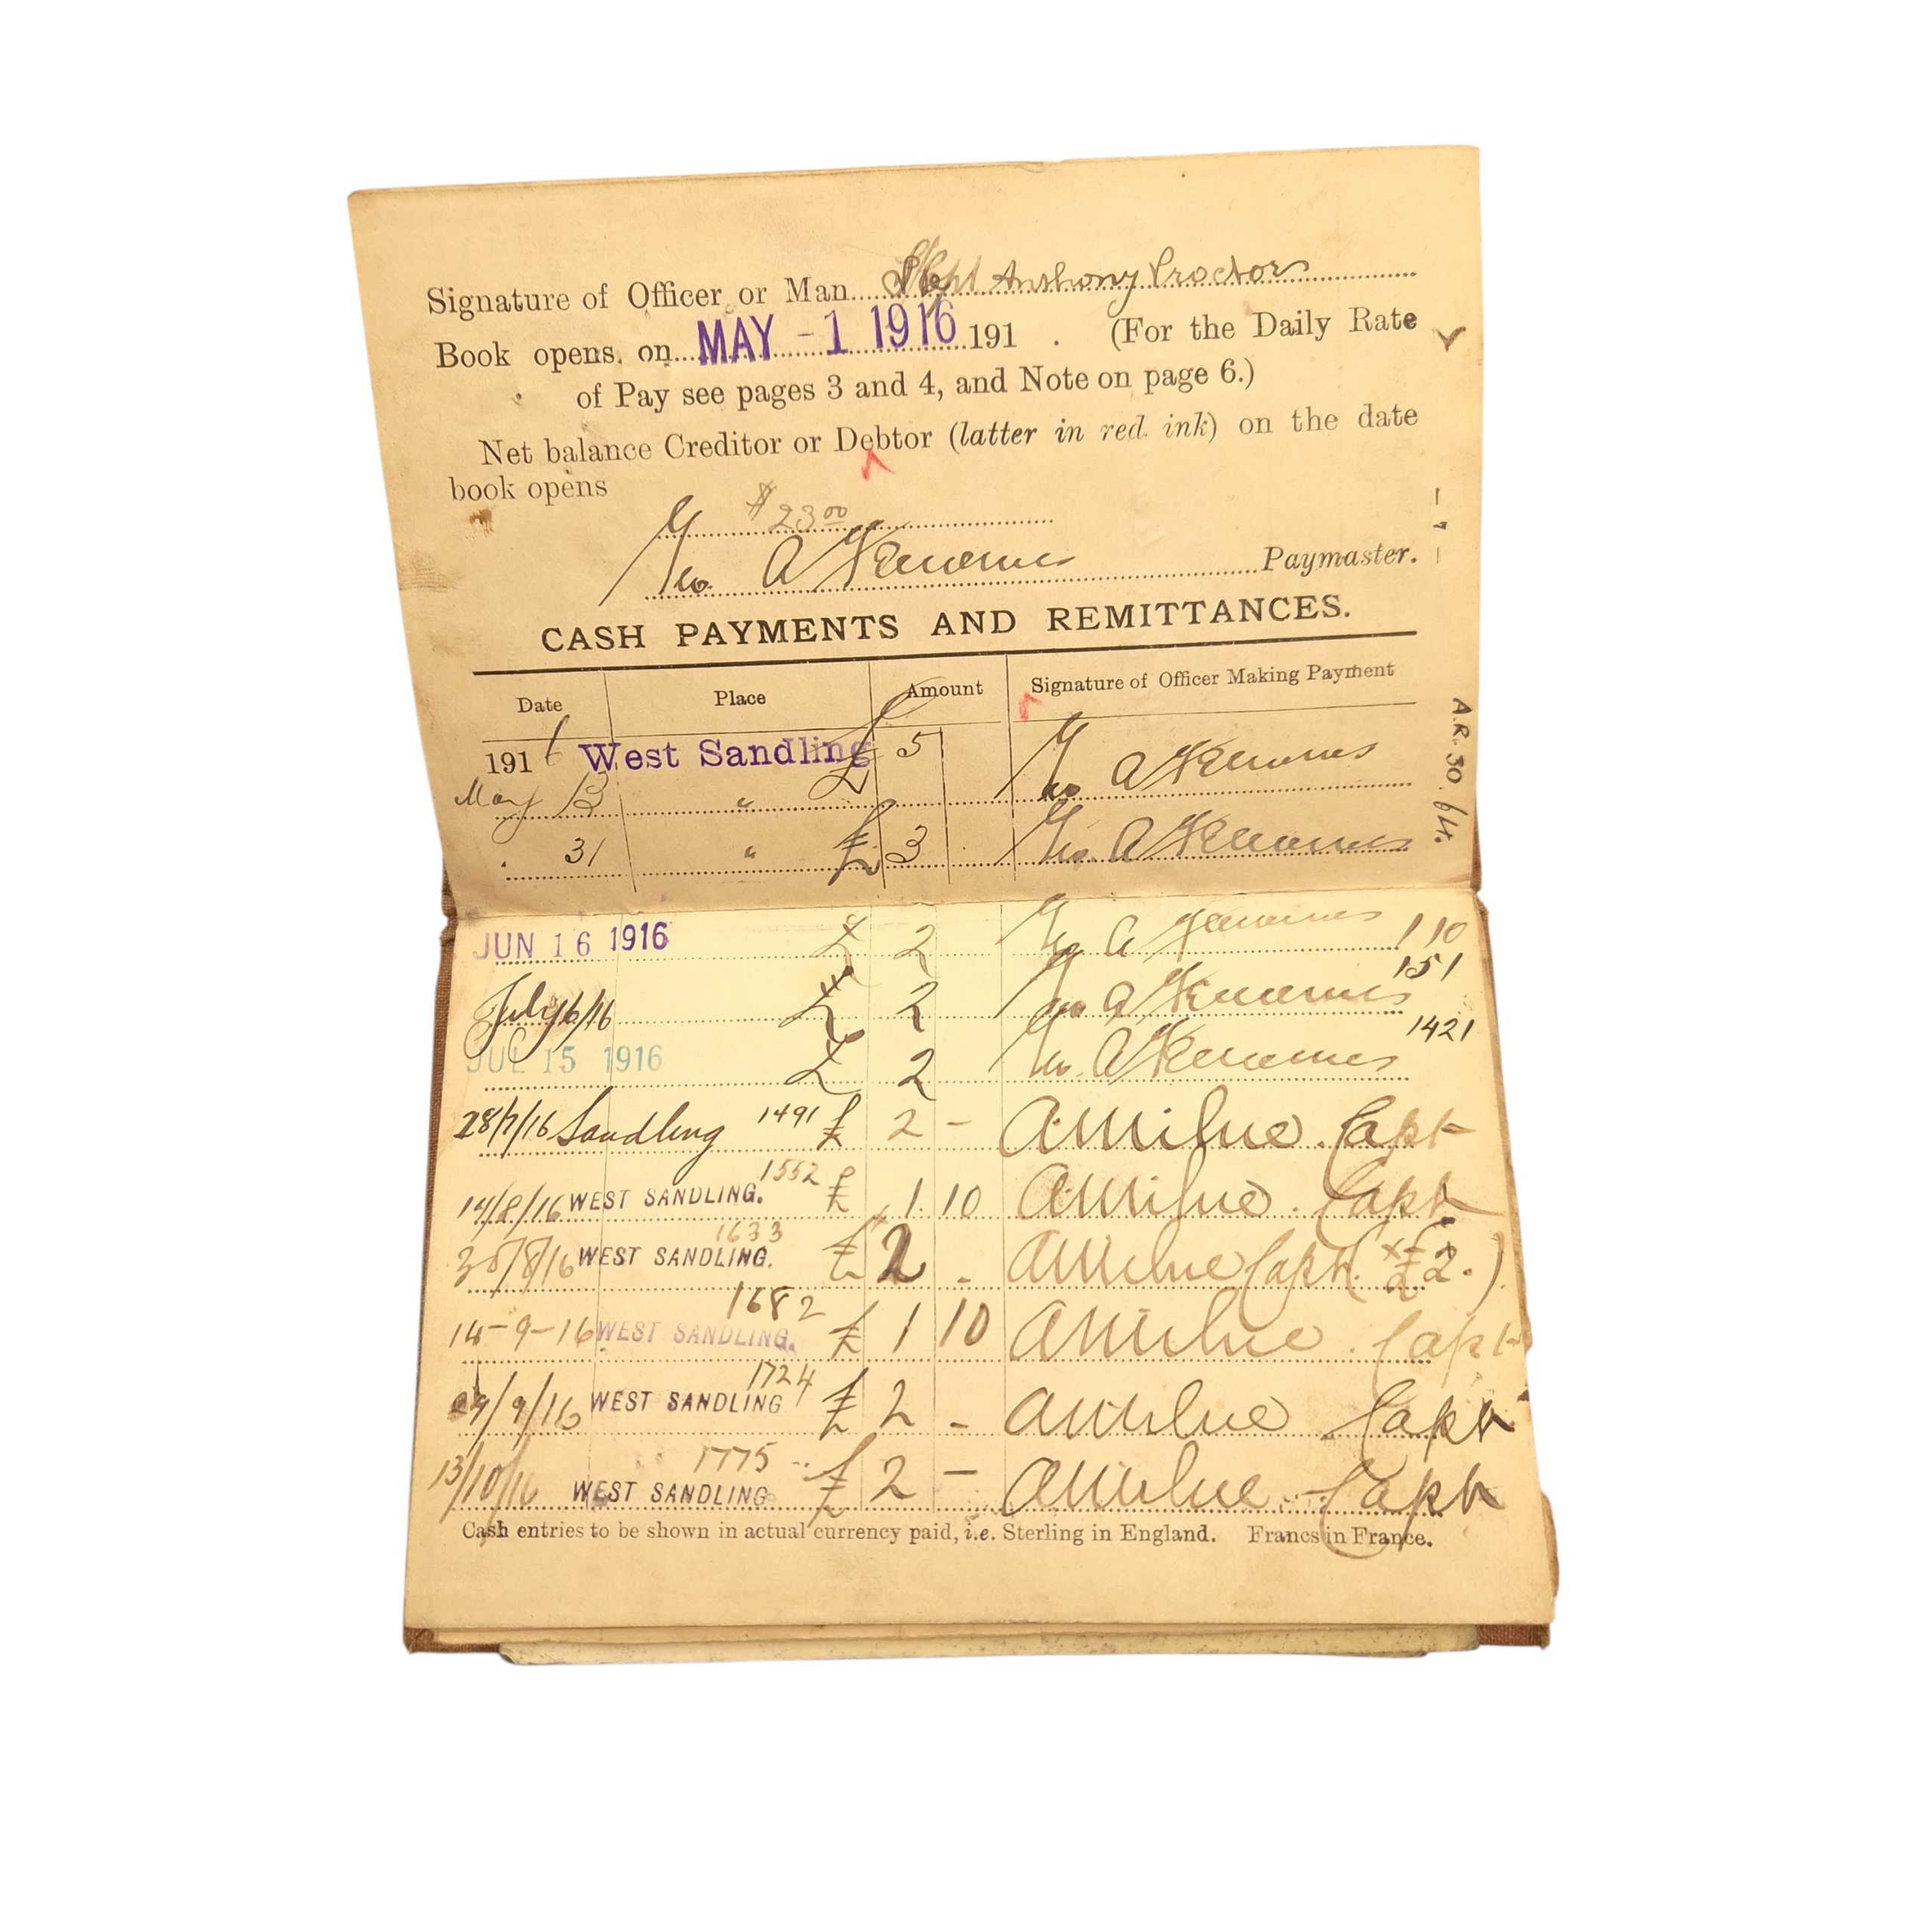 Signature of Officer or Man Anthony Proctor
Book opens on MAY - 1 1916 191 . (For the Daily Rate
of Pay see pages 3 and 4, and Note on page 6.)
Net balance Creditor or Debtor (latter in red ink) on the date
book opens
$23.00
Geo. A Paymaster.
CASH PAYMENTS AND REMITTANCES.
Date Place Amount Signature of Officer Making Payment
1916 West Sandling £ 5 Geo A
May 13 "
. 31 " £ 3 Geo. A
A.R. 30. 64.
JUN 16 1916 £ 2 Geo A 110
July 6/16 £ 2 Geo A 151
JUL 15 1916 £ 2 Geo. A 1421
28/7/16 Sandling 1491 £ 2 - A Milne. Capt
14/8/16 WEST SANDLING. 1552 £ 1 10 A Milne. Capt
30/8/16 WEST SANDLING. 1633 £ 2 - A Milne Capt. (x £2.)
14-9-16 WEST SANDLING. 1682 £ 1 10 A Milne. Capt
/9/16 WEST SANDLING 1724 £ 2 - A Milne Capt
13/10/16 WEST SANDLING 1775 £ 2 - A Milne. Capt
Cash entries to be shown in actual currency paid, i.e. Sterling in England. Francs in France.